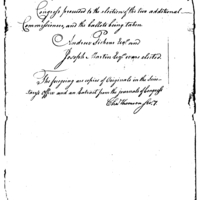 Congress proceeded to the election of the two additional
Commissioners, and the ballots being taken
Andrew Pickens Esqr. and
Joseph Martin Esqr. were elected.
The foregoing are copies of Originals in the Secre-
tary's Office and an Extract from the journals of Congress
Chas Thomson Secy.